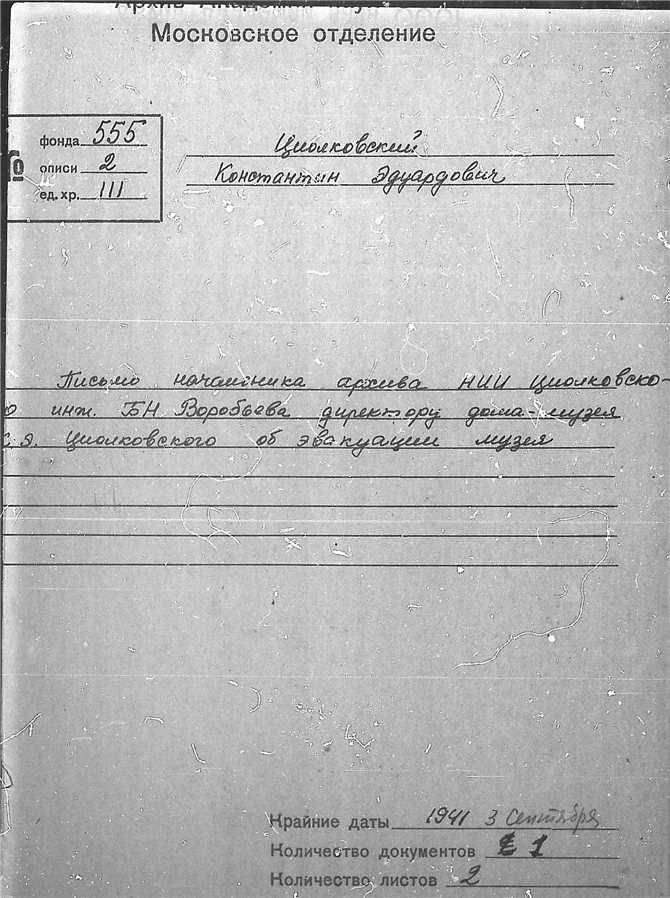 Московское отделение
№
фонда 555
описи 2
ед. хр. 111
Циолковский
Константин Эдуардович
Письмо начальника архива НИИ Циолковско-
о инж. БН Воробьева директору дома-музея
Циолковского об эвакуации музея
Крайние даты 1941 3 Сентября
Количество документов 1
Количество листов 2